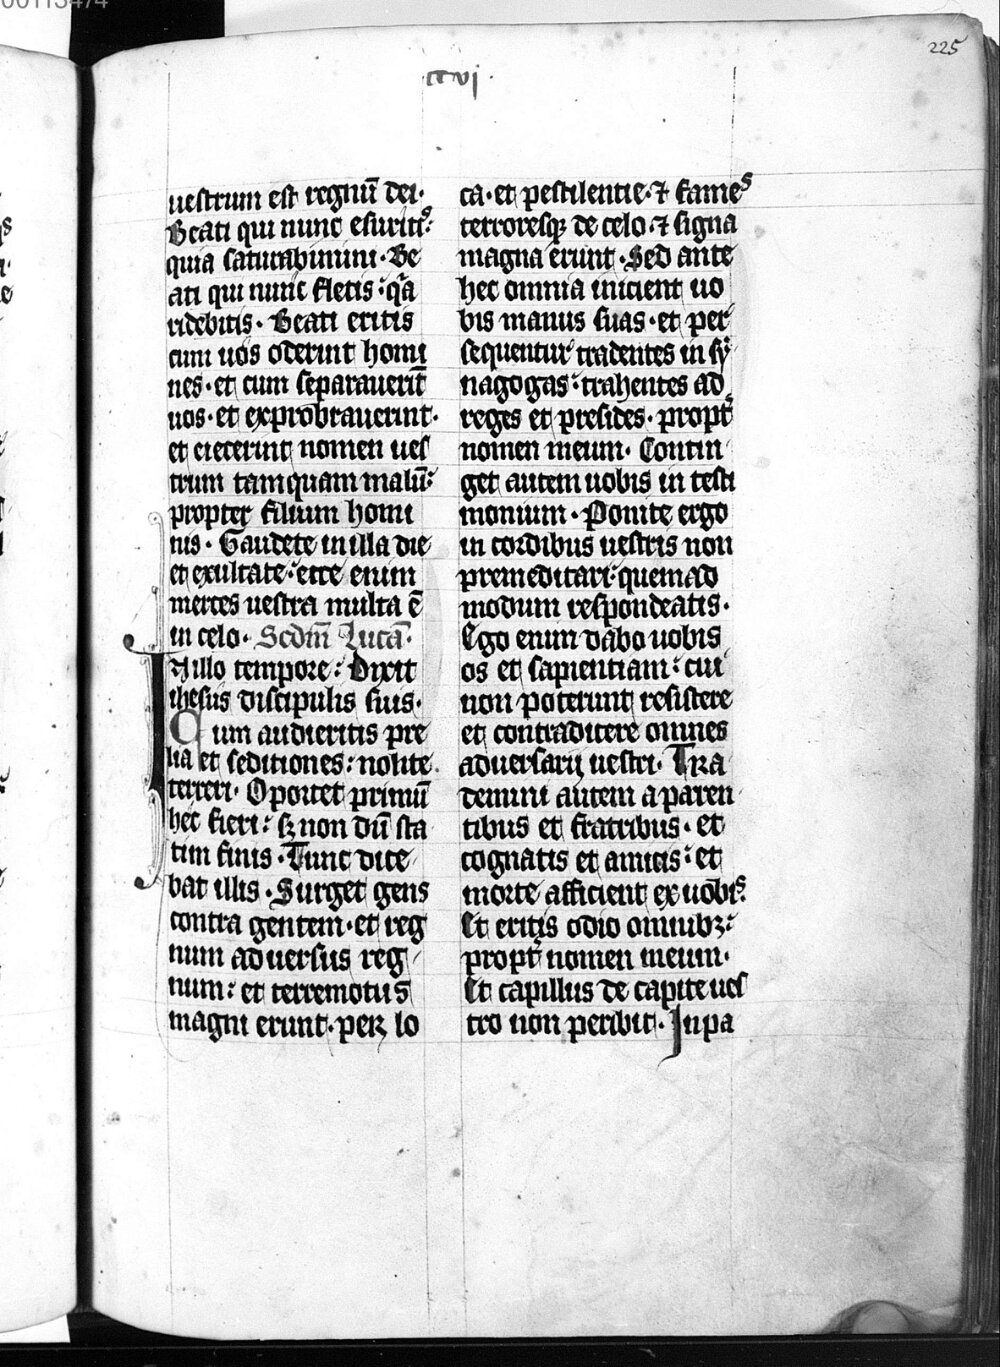 00113474
225
ccvj
uestrum est regnū dei·
Beati qui nunc esuritꝭ:
quia saturabimini· Be
ati qui nunc fletis: qͣa
ridebitis· Beati eritis
cum uos oderint homi
nes· et cum separauerīt
uos· et exprobrauerint·
et eiecerint nomen ues
trum tamquam malū:
propter filium homi
nis· Gaudete in illa die
et exultate: ecce enim
merces uestra multa ē
in celo· Scdm̄ Lucā·
In illo tempore: Dixit
ihesus discipulis suis·
Cum audieritis pre
lia et seditiones: nolite
terreri· Oportet primū
hec fieri: sꝫ non dū sta
tim finis· Tunc dice
bat illis· Surget gens
contra gentem· et reg
num aduersus reg
num: et terremotus
magni erunt· per lo
ca· et pestilentie· ⁊ fames
terroresqꝫ de celo· ⁊ signa
magna erunt· Sed ante
hec omnia inicient uo
bis manus suas· et per
sequentur tradentes in sy
nagogas: trahentes ad
reges et presides· propt̾
nomen meum· Contin
get autem uobis in testi
monium· Ponite ergo
in cordibus uestris non
premeditari: quemad
modum respondeatis·
Ego enim dabo uobis
os et sapientiam: cui
non poterunt resistere
et contradicere omnes
aduersarij uestri· Tra
demini autem a paren
tibus et fratribus· et
cognatis et amicis: et
morte afficient ex uobis:
Et eritis odio omnibꝫ:
propt̾ nomen meum·
Et capillus de capite ues
tro non peribit· In pa